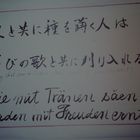 と共に種を蒔く人は
びの歌と共に刈り入れ
mit Tränen säen
den mit Freuden ern